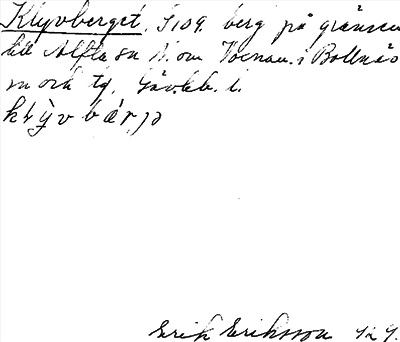 Klyvberget, S109. berg på gränsen
till Alfta sn N. om Voxnan i Bollnäs
sn och tg. Gävleb. l.
klỳvbærjə
Erik Eriksson